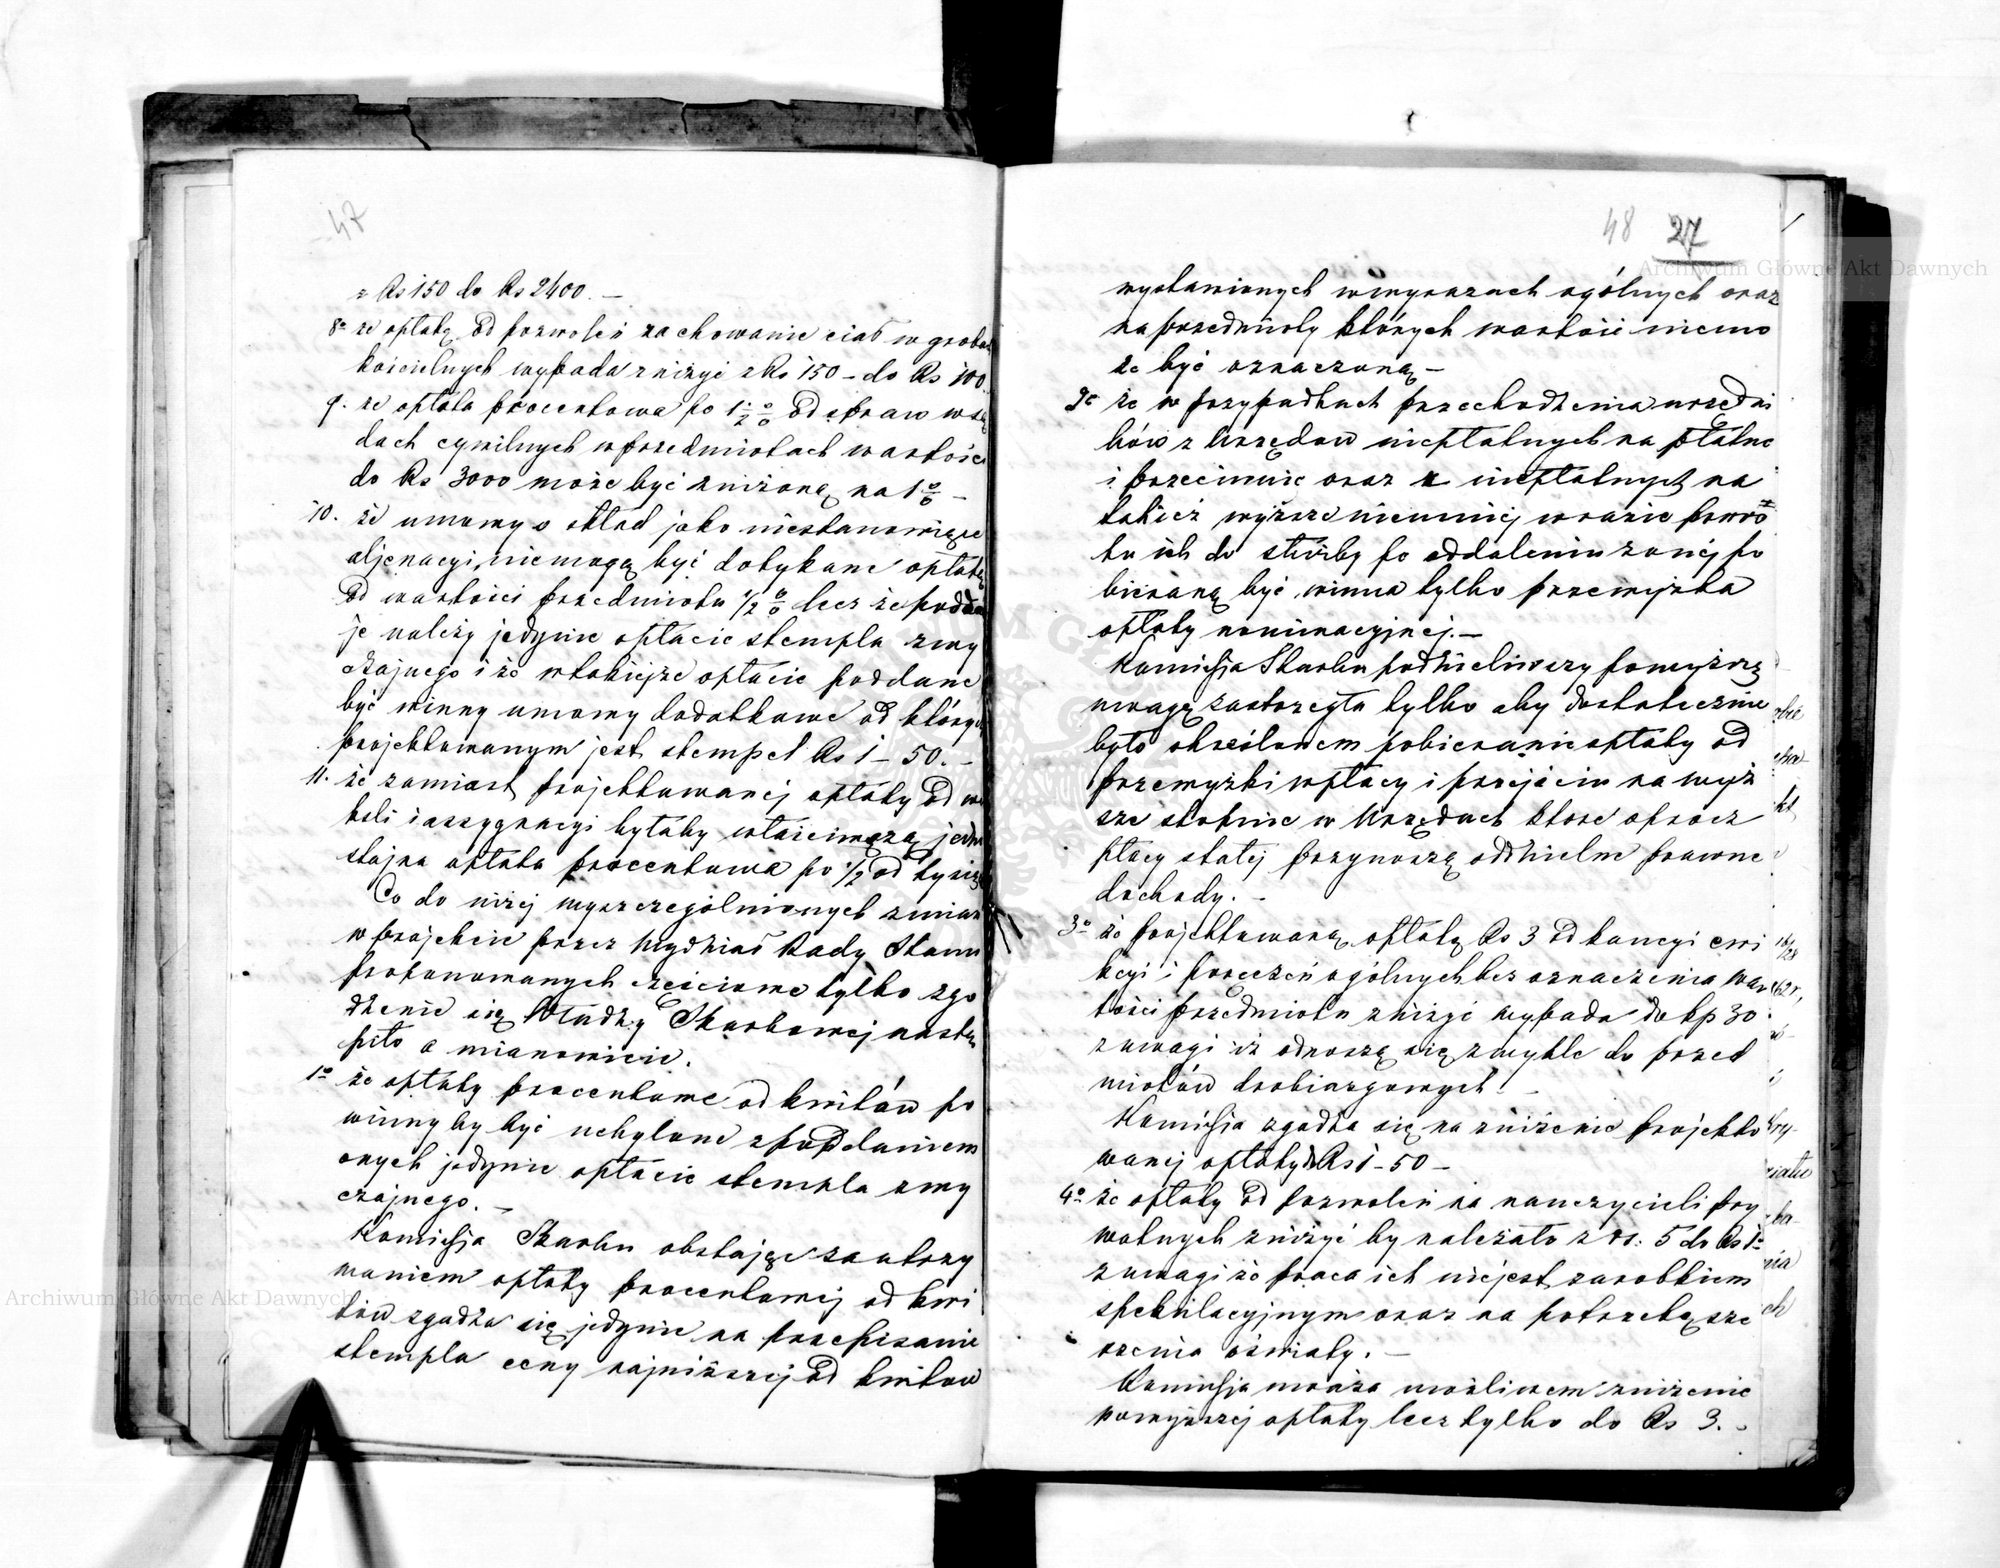 47
z Rs 150 do Rs 2400. —
8º że opłatę od pozwoleń zachowanie ciał w grobach
kościelnych wypada zniżyć z Rs 150 – do Rs 100.
9. że opłata procentowa po 1 1/2 % od spraw w są
dach cywilnych w przedmiotach wartości
do Rs 3000 może być zniżoną na 1 % –
10. że umowy o skład jako niestanowiące
aljenacyi, niemogą być dotykane opłatą
od wartości przedmiotu 1/2 % lecz że podda
je należy jedynie opłacie stempla zwy
czajnego i że w takiejże opłacie poddane
być winny umowy dodatkowe od których
projektowanym jest stempel Rs 1 – 50. –
11. że zamiast projektowanej opłaty od we
ksli i assygnacyi byłaby właściwszą jedno
stajna opłata procentowa po 1/2 od tysiąca
Co do niżej wyszczególnionych zmian
w projekcie przez Wydział Rady Stanu
proponowanych częściowe tylko zgo
dzenie się Władzy Skarbowej nastą
piło a mianowicie.
1º że opłaty procentowe od kwitów po
winny by być uchylone z poddaniem
onych jedynie opłacie stempla zwy
czajnego. –
Komissja Skarbu obstając za utrzy
maniem opłaty procentowej od kwi
tów zgadza się jedynie na przepisanie
stempla ceny najniższej od kwitów
48 27
wystawionych w wyrazach ogólnych oraz
na przedmioty których wartość niemo
że być oznaczoną –
2º że w przypadkach przechodzenia urzędni
ków z Urzędów niepłatnych na płatne
i przeciwnie oraz z niepłatnych na
takież wyższe niemniej w razie powro
tu ich do służby po oddaleniu z onej po
bieraną być winna tylko przewyżka
opłaty nominacyjnej. –
Komissja Skarbu podzieliwszy powyższą
uwagę zastrzegła tylko aby dostatecznie
było określonem pobieranie opłaty od
przewyżki w płacy i przejściu na wyż
sze stopnie w Urzędach które oprócz
płacy stałej przynoszą oddzielne prawne
dochody. –
3º że projektowaną opłatę Rs 3 od kaucyi ewi
kcyi i poręczeń ogólnych bez oznaczenia war
tości przedmiotu zniżyć wypada do kp 30
z uwagi iż odnoszą się zwykle do przed
miotów drobiazgowych. –
Komissja zgadza się na zniżenie projekto
wanej opłaty do Rs 1 – 50 –
4º że opłaty od pozwoleń na nauczycieli pry
watnych zniżyć by należało z rs. 5 do Rs 1º
z uwagi że praca ich niejest zarobkiem
spekulacyjnym oraz na potrzebę sze
rzenia oświaty. –
Komissja uważa możliwem zniżenie
powyższej opłaty lecz tylko do Rs 3. –
Archiwum Główne Akt Dawnych
Archiwum Główne Akt Dawnych